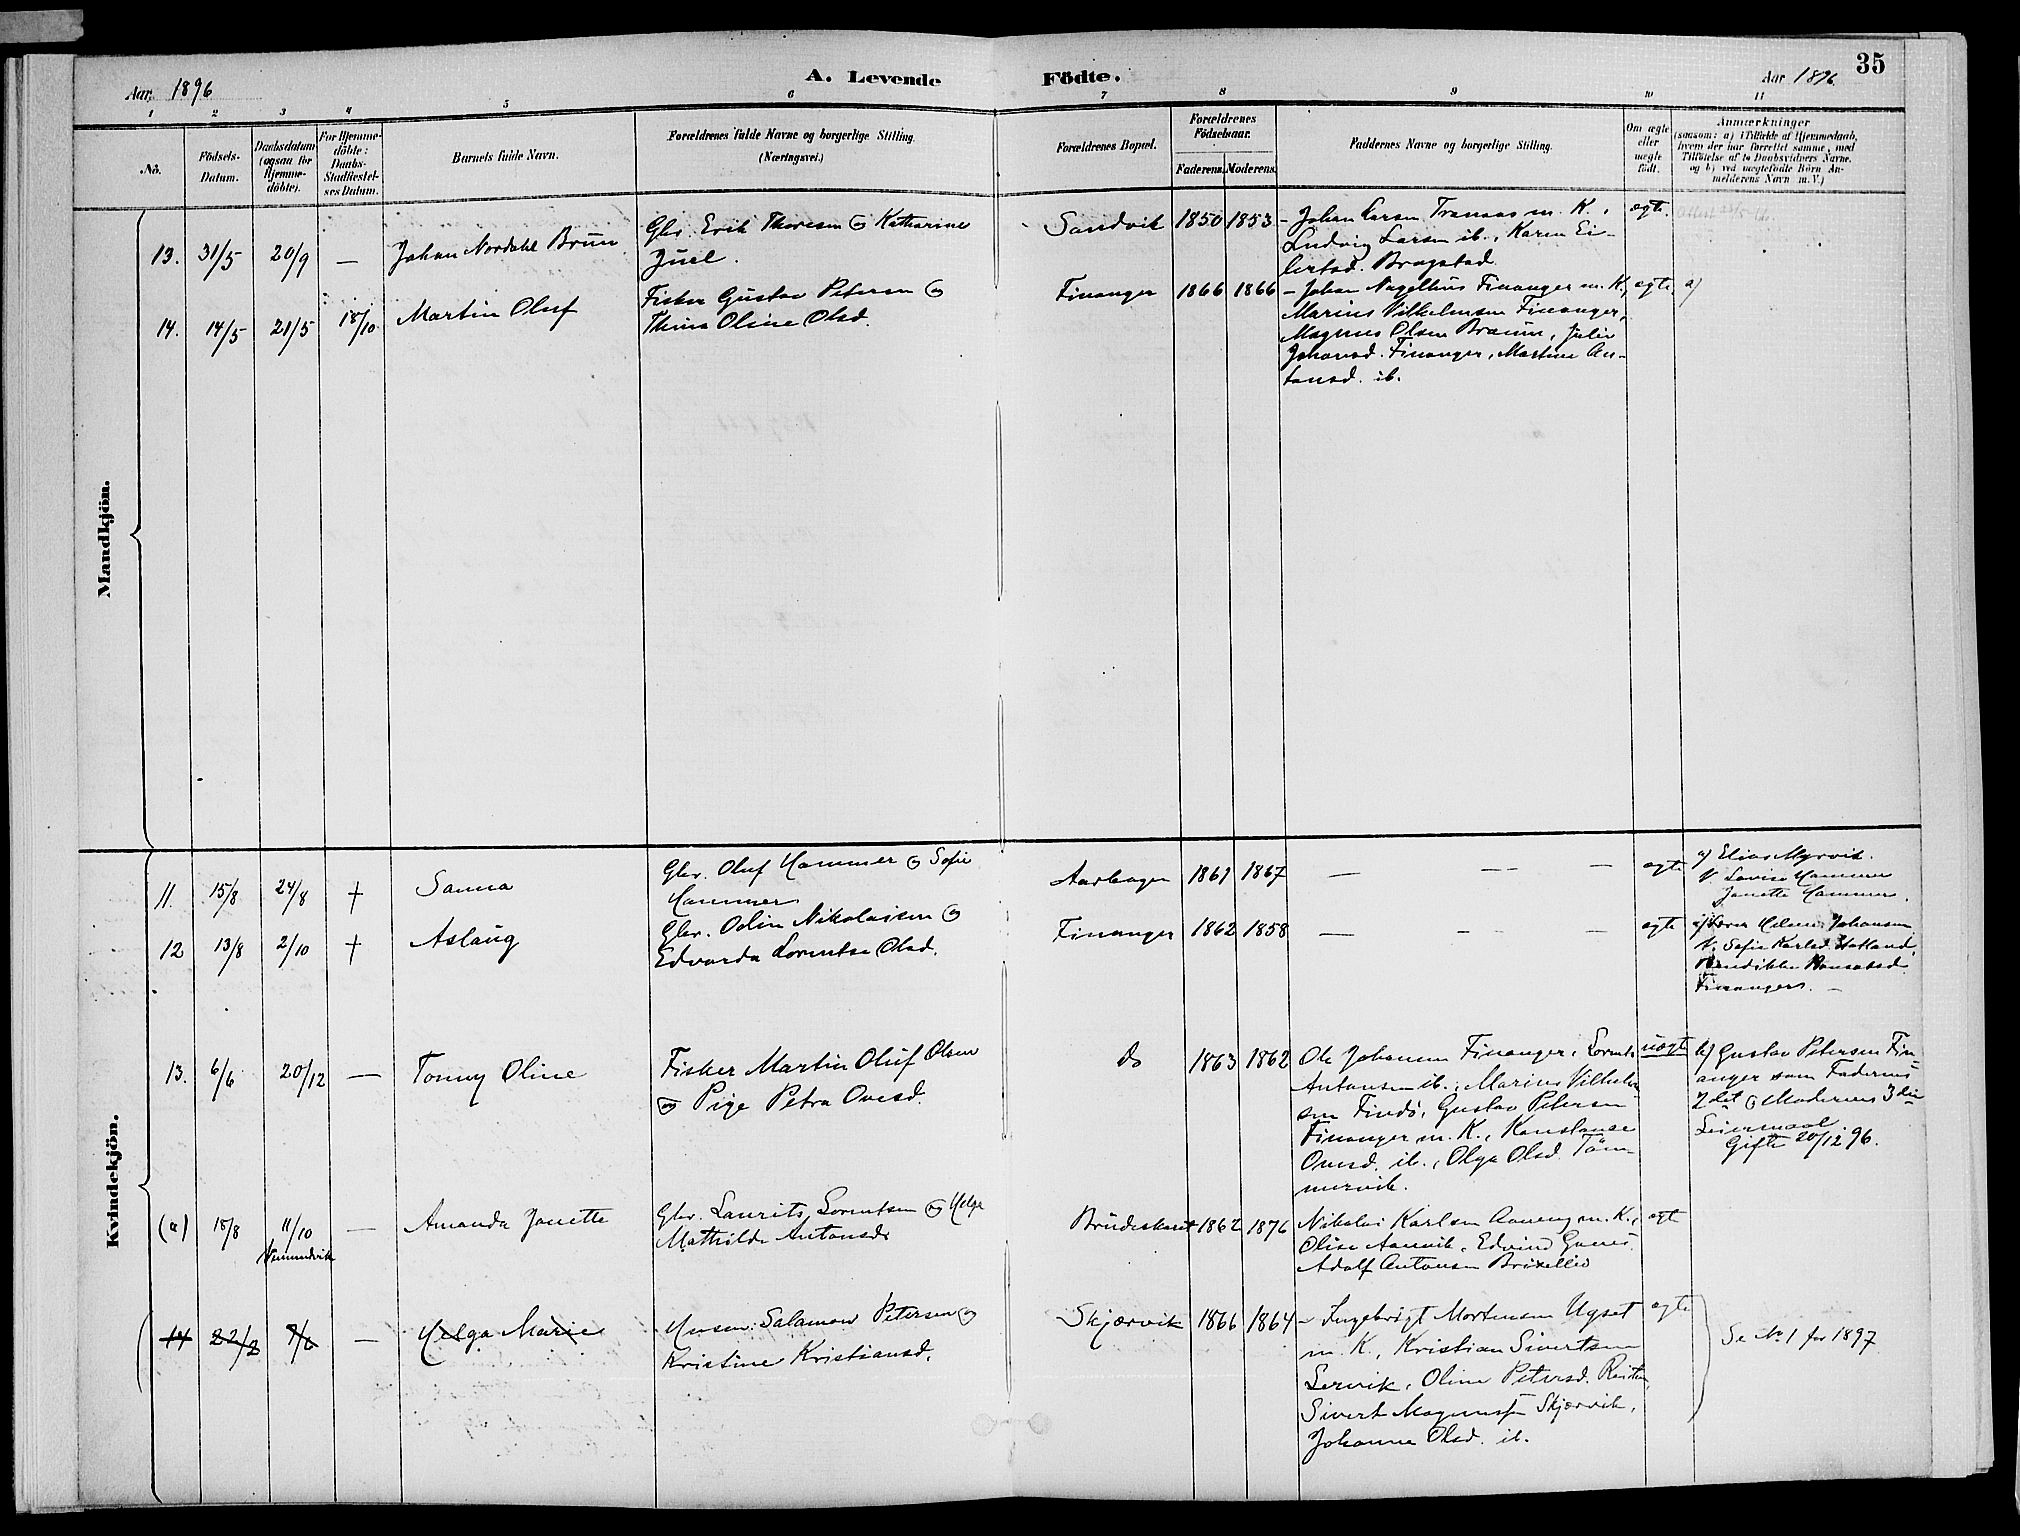 35
Aar. 1896
A. Levende Födte.
Aar 1896.
1 2 3 4 5 6 7 8 9 10 11
No.
Födsels-
Datum.
Daabsdatum
(ogsaa for
Hjemme-
döbte).
For Hjemme-
döbte:
Daabs-
Stadfæstel-
ses Datum.
Barnets fulde Navn.
Forældrenes fulde Navne og borgerlige Stilling.
(Næringsvei.)
Forældrenes Bopæl.
Forældrenes
Födselsaar.
Faderens. Moderens.
Faddernes Navne og borgerlige Stilling.
Om ægte
eller
uægte
født.
Anmærkninger
(saasom: a) i Tilfælde af Hjemmedaab,
hvem der har forrettet samme, med
Tilføielse af to Daabsvidners Navne.
og b) ved uægtefödte Börn An-
melderens Navn m. V.)
Mandkjön.
13. 31/5 20/9 — Johan Nordahl Brun
Gbr. Erik Thoresen og Katharine
Juel.
Sandvik 1850 1853
- Johan Larsen Tranaas m. K.,
Ludvig Larsen ib., Karen Ei-
lertsd. Bragstad
ægte.
14. 14/5 21/5 18/10 Martin Oluf
Fisker Gustav Petersen og
Thina Oline Olsd.
Finanger 1866 1866
- Johan Nagelhus Finanger m. K.,
Marius Vilhelmsen Finanger,
Magnus Olsen Braun, Julie
Johansd. Finanger, Martine An-
tonsd. ib.
ægte, a)
Kvindekjön.
11. 15/8 24/8 † Sanna
Gbr. Oluf Hammer og Sofie
Hammer
Aarhagen 1861 1867 — — —
ægte
a) Elias Myrvik.
V. Lovise Hammer
Janette Hammer.
12 13/8 2/10 † Aslaug
Gbr. Odin Nikolaisen og
Edvarda Lorentse Olsd.
Finanger 1862 1858 — - —
ægte
Johansen
V. Sofie Karlsd. Hatland,
Finangers. —
13. 6/6 20/12 — Tonny Oline
Fisker Martin Oluf Olsen
og Pige Petra Ovesd.
do 1863 1862
Ole Johansen Finanger, Lorents
Antonsen ib., Marius Vilhelm-
sen Findö, Gustav Petersen
Finanger m. K., Konstanse
Ovesd. ib., Olga Olsd. Töm-
mervik.
uægte
b) Gustav Petersen Fin-
anger som Faderens
2det og Moderens 3die
Leiermaal
Gifte 20/12 96.
(a) 18/8 11/10 — Amanda Janette
Gbr. Laurits Lorentsen og Helga
Mathilde Antonsd.
Brudeskaret 1862 1876
Nikolai Karlsen Aaneng m. K.,
Olise Aanvik, Edvind
Adolf Antonsen
ægt
14 22/2 7/6 — Helga Marie
Salamon Petersen og
Kristine Kristiansd.
Skjærvik 1866 1864
- Ingebrigt Mortensen Ugset
m. K., Kristian Sivertsen
Servik, Oline Petersd.
Sivert Magnussen Skjærvik,
Johanna Olsd. ib.
ægte
Se No 1 for 1897